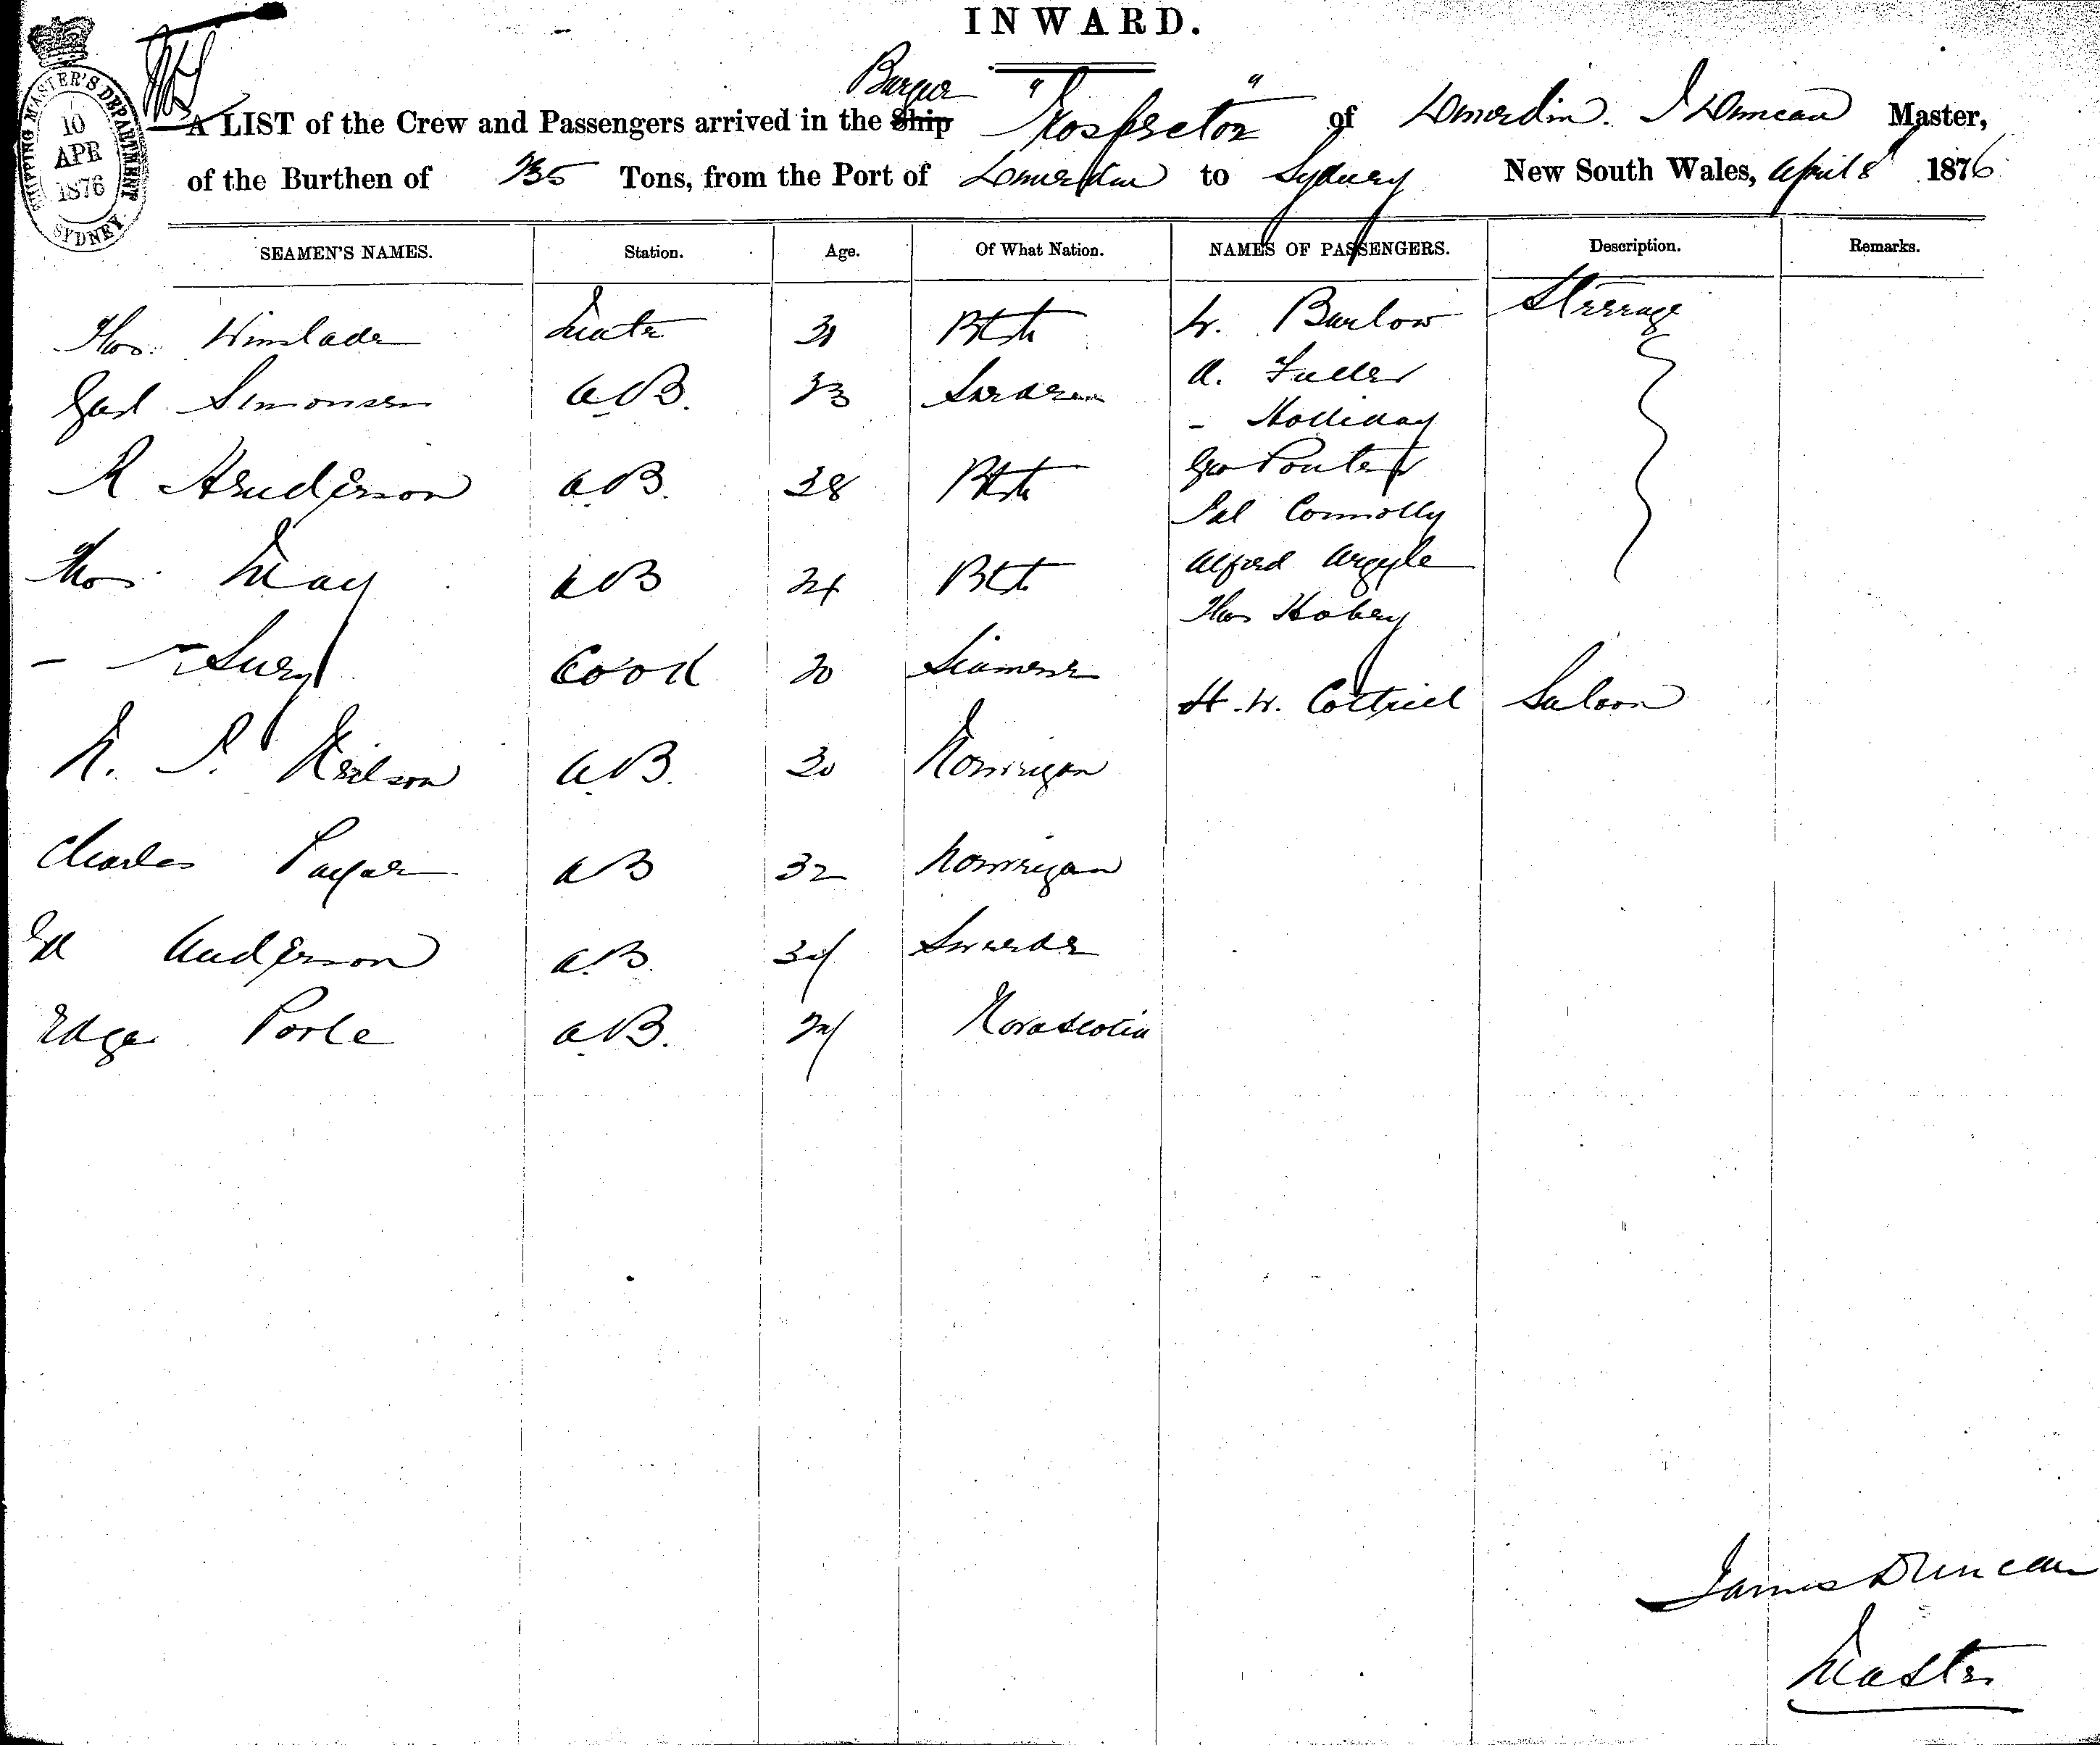 INWARD.
SHIPPING MASTER'S DEPARTMENT
10
APR
1876
SYDNEY
Barque
A LIST of the Crew and Passengers arrived in the Ship "Prospector" of Dunedin. J Duncan Master,
of the Burthen of Tons, from the Port of Dunedin to Sydney New South Wales, April 8 1876
SEAMEN'S NAMES. Station. Age. Of What Nation. NAMES OF PASSENGERS. Description. Remarks.
Thos. Winslade Mate Btsh W. Barlow Steerage
Simonsen A.B. 23 Sweden A. Fuller
- Holliday
R Henderson A.B. 38 Btsh Geo Ponter
Pat Connolly
Thos. May AB 24 Btsh Alfred Argyle
Thos Hobey
- Cook 20 Siamese
H. W. Cottriel Saloon
N. P. Neilson A.B. 30 Norwigan
Charles AB 32 Norwigan
Ed Anderson A.B. 34 Swede
Edgar Poole A.B. 24 Novascotia
James Duncan
Master